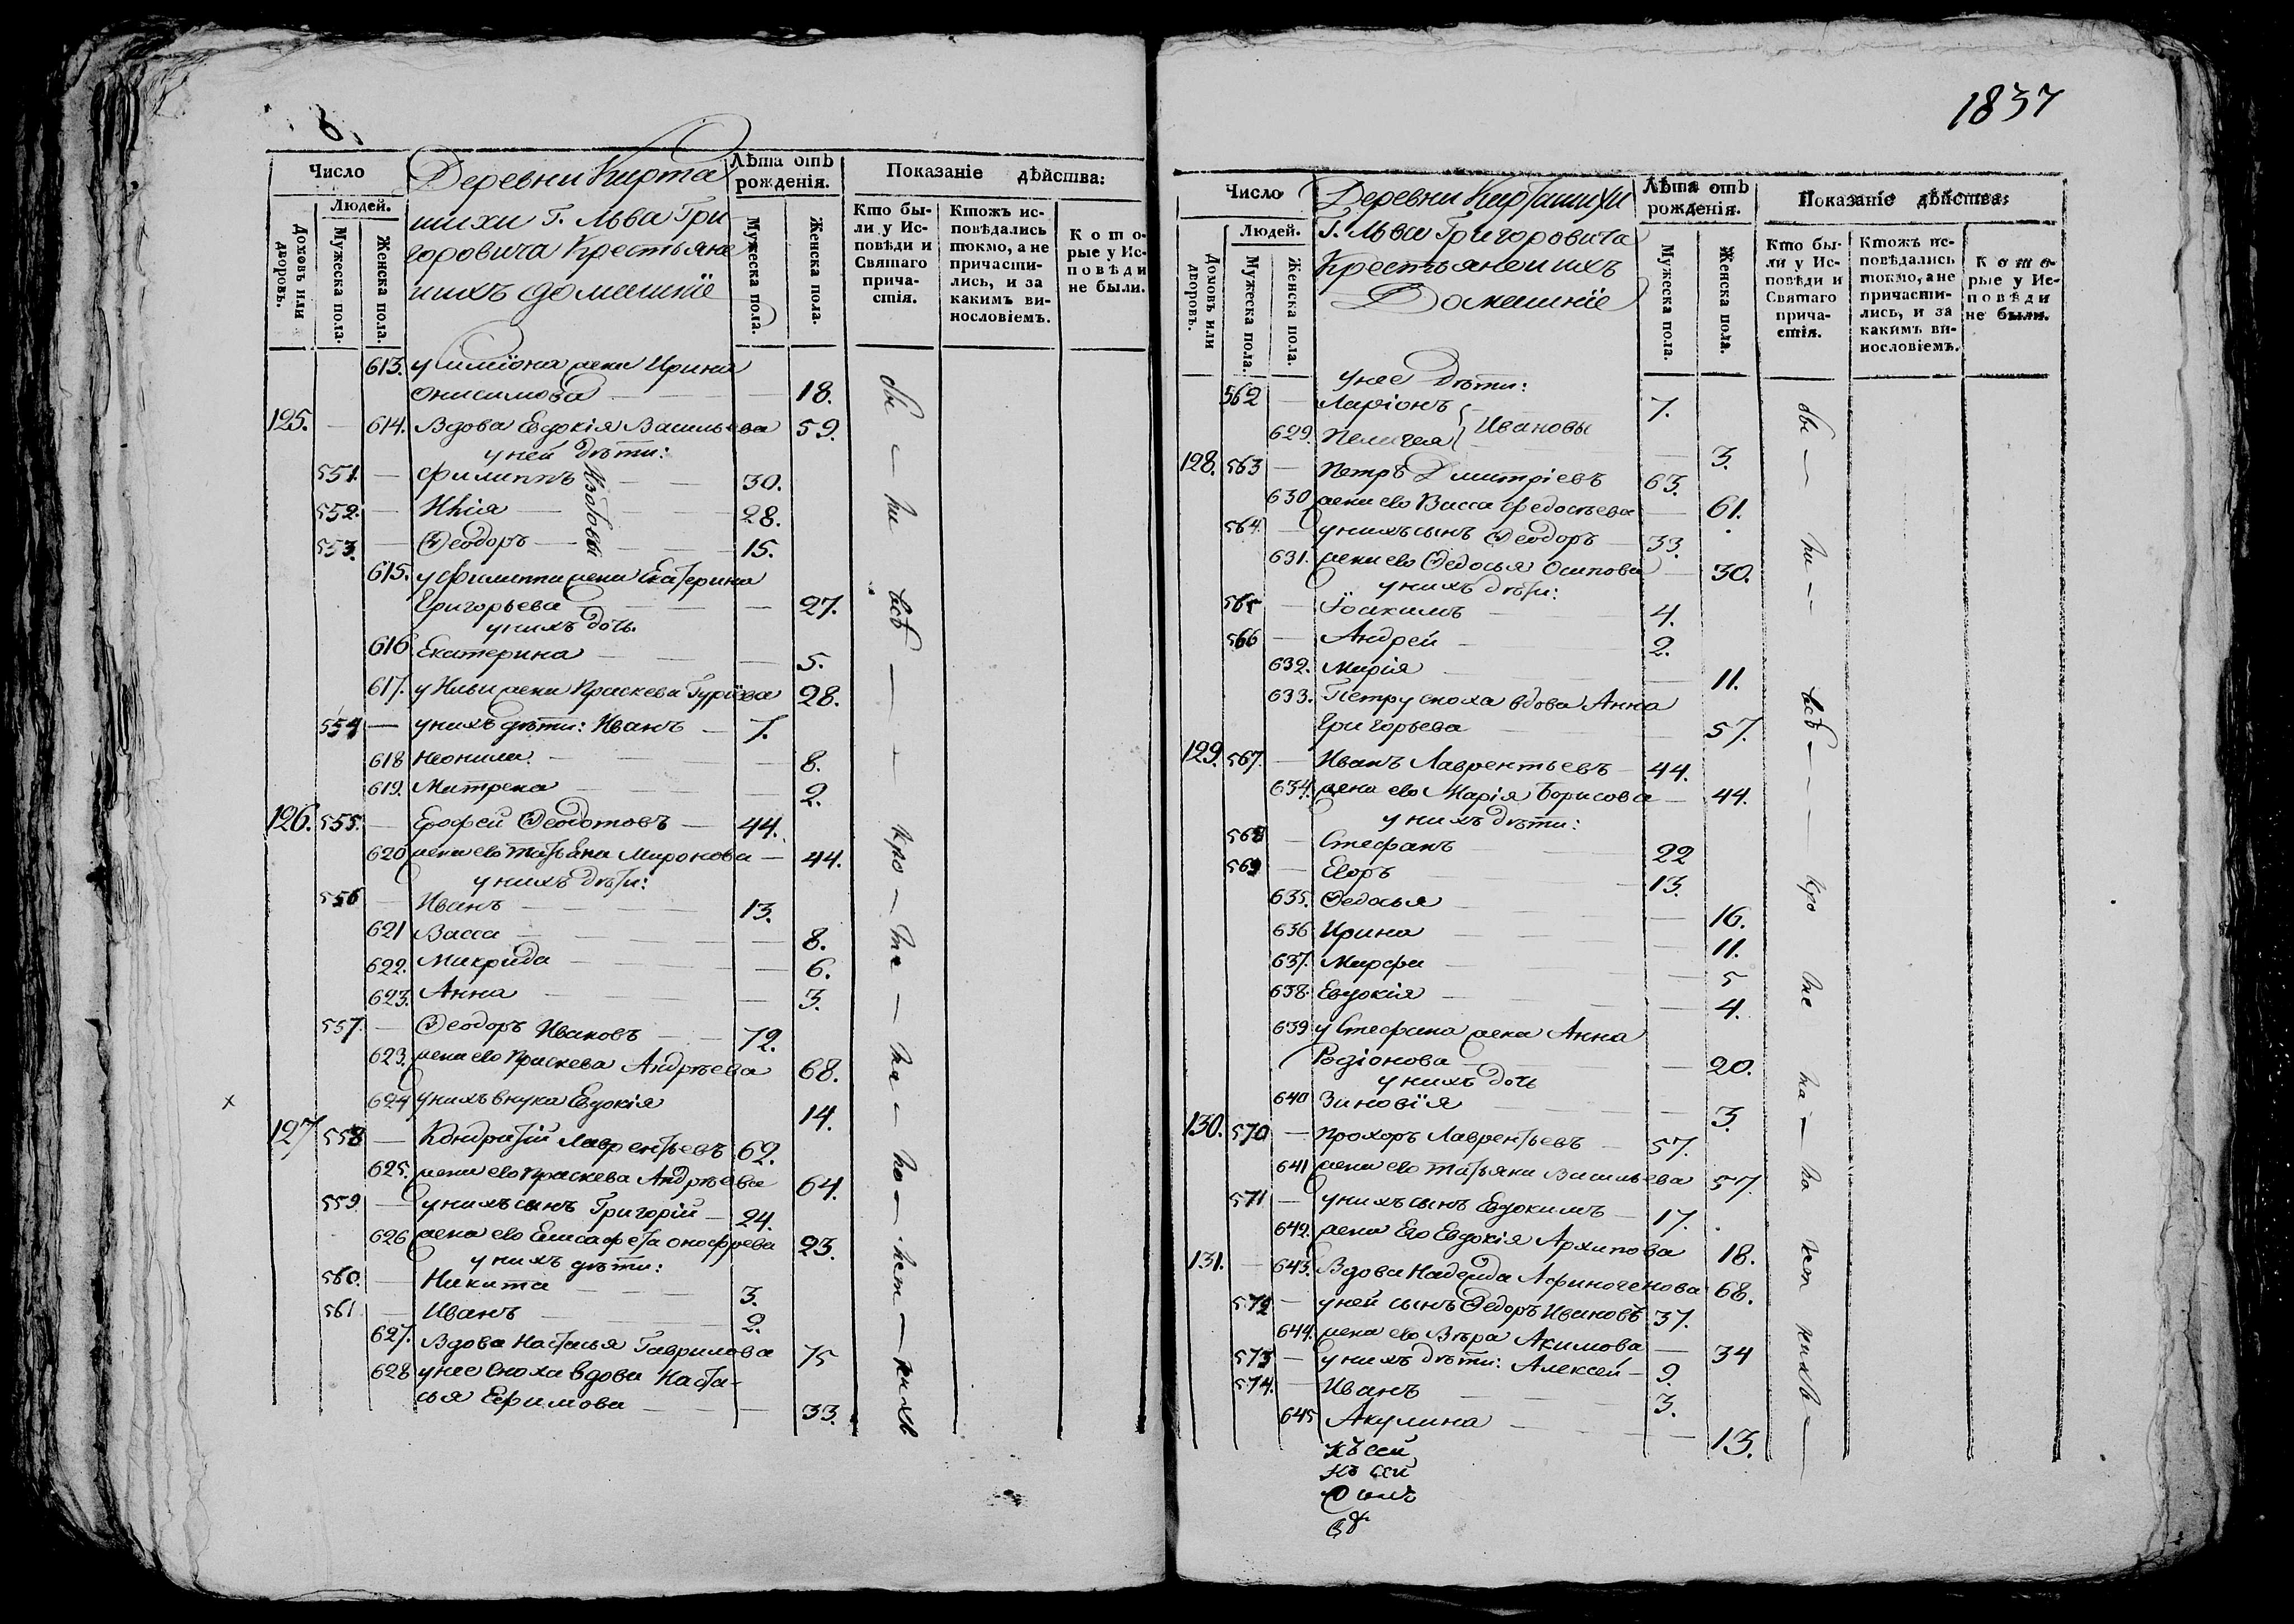 8
Число
Деревни Кирта
Лѣта отъ рожденія.
Показаніе дѣйства:
Людей.
шихи Г. Льва Гри
горовича Крестьяне
ихъ домашніе
Домовъ или дворовъ.
Мужеска пола.
Женска пола.
Мужеска пола.
Женска пола.
Кто бы-
ли у Ис-
повѣди и
Святаго
прича-
стія.
Ктожъ ис-
повѣдались
токмо, а не
причасти-
лись, и за
какимъ ви-
нословіемъ.
Кото-
рые у Ис-
повѣди
не были.
613. у жена Ирина
Онисимова 18.
125. 614. Вдова Евдокія Васильева 59.
у ней дѣти:
551. Филиппъ 30.
552. Илія 28.
553. Ѳеодоръ 15.
615. у Филиппа жена Екатерина
Григорьева 27.
у нихъ дочь
616 Екатерина 5.
617. у Ильи жена Праскева Гуріева 28.
554 у нихъ дѣти: Иванъ 7.
618 Неонила 8.
619. Матрена 2.
126. 555. Ерофей Ѳеодотовъ 44.
620 жена ево Татьяна Миронова 44.
у нихъ дѣти:
556 Иванъ 13.
621 Васса 8.
622. Макрида 6.
623. Анна 3.
557. Ѳеодоръ Ивановъ 72.
623. жена ево Праскева Андрѣева 68.
624 у нихъ внука Евдокія 14.
х
127 558 Кондратій Лаврентьевъ 62.
625. жена ево Праскева Андрѣева 64.
559. у нихъ сынъ Григорій 24.
626 жена ево Елисафета Онофрева 23.
у нихъ дѣти:
560. Никита 3.
561 Иванъ 2.
627. Вдова Наталья Гаврилова 75
628 у нее сноха вдова Ната-
лья Ефимова 33.
всѣ
1837
Число
Деревни Кирташихи
Лѣта отъ рожденія.
Показаніе дѣйства:
Людей.
Г. Льва Григоровича
Крестьяне и ихъ
Домашніе
Домовъ или дворовъ.
Мужеска пола.
Женска пола.
Мужеска пола.
Женска пола.
Кто бы-
ли у Ис-
повѣди и
Святаго
прича-
стія.
Ктожъ ис-
повѣдались
токмо, а не
причасти-
лись, и за
какимъ ви-
нословіемъ.
Кото-
рые у Ис-
повѣди
не были.
у нее дѣти:
562 Ларіонъ 7.
Ивановы
629 Пелагея 3.
128. 563 Петръ Дмитріевъ 63.
630 жена ево Васса Федосѣева 61.
564. у нихъ сынъ Ѳеодоръ 33.
631. жена ево Ѳедосья Осипова 30.
у нихъ дѣти:
565 Іоакимъ 4.
566 Андрей 2.
632. Марія 11.
633. Петру сноха вдова Анна
Григорьева 57.
129. 567. Иванъ Лаврентьевъ 44.
634. жена ево Марія Борисова 44.
у нихъ дѣти:
568 Стефанъ 22
569 Егоръ 13.
635. Ѳедосья 16.
636 Ирина 11.
637. Марфа 5
638. Евдокія 4.
639 у Стефана жена Анна
Родіонова 20.
у нихъ дочь
640 Зиновія 3.
130. 570 Прохоръ Лаврентьевъ 57.
641 жена ево Татьяна Васильева 57.
571 у нихъ сынъ Евдокимъ 17.
642. жена Ево Евдокія Архипова 18.
131. 643. Вдова Надежда Афиногенова 68.
572 у ней сынъ Ѳедоръ Ивановъ 37.
644. жена ево Вѣра Акимова 34
573 у нихъ дѣти: Алексей 9.
574. Иванъ 3.
645 Акулина 13.
всѣ
Къ сей
Къ сей